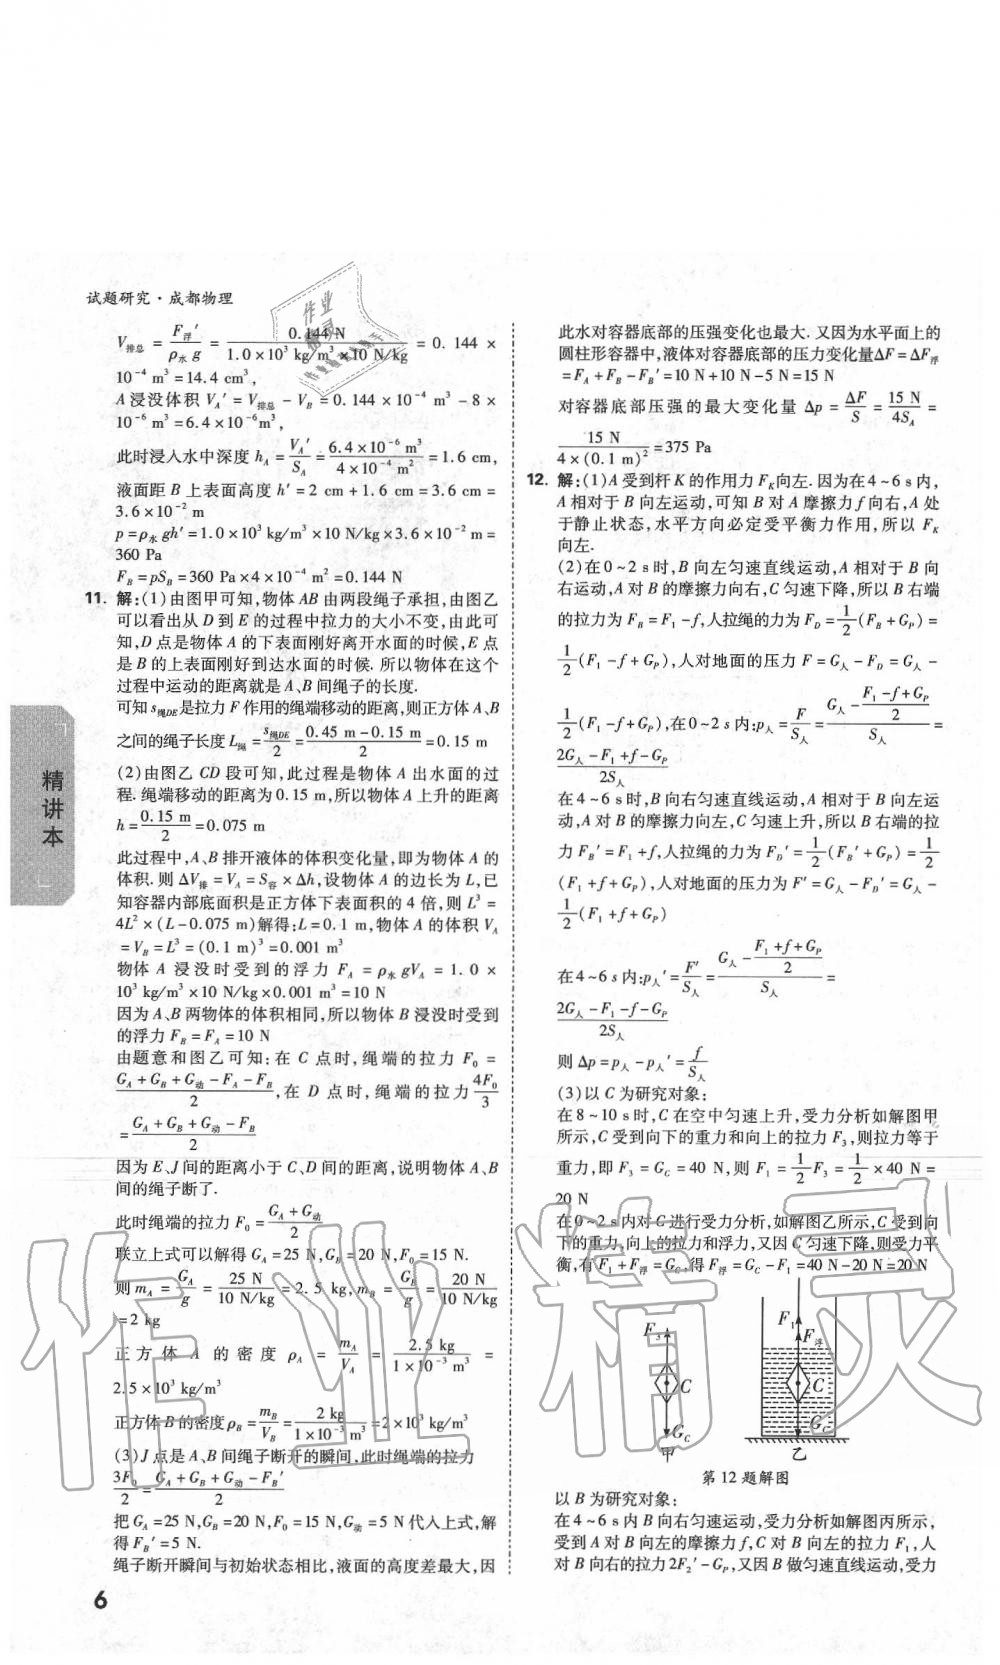 试题研究·成都物理
V排总 = F浮′/ρ水 g = 0.144 N/1.0×10³ kg/m³×10 N/kg = 0. 144 ×
10⁻⁴ m³=14.4 cm³,
A 浸没体积 V_A′ = V排总 - V_B = 0.144×10⁻⁴ m³-8×
10⁻⁶ m³=6.4×10⁻⁶m³,
此时浸入水中深度 h_A = V_A′/S_A = 6.4×10⁻⁶ m³/4×10⁻⁴ m² = 1.6 cm,
液面距 B 上表面高度 h′=2 cm+1.6 cm=3.6 cm=
3.6×10⁻² m
p=ρ水 gh′=1.0×10³ kg/m³×10 N/kg×3.6×10⁻² m=
360 Pa
F_B=pS_B=360 Pa×4×10⁻⁴ m²=0.144 N
11. 解:(1)由图甲可知,物体 AB 由两段绳子承担,由图乙
可以看出从 D 到 E 的过程中拉力的大小不变,由此可
知,D 点是物体 A 的下表面刚好离开水面的时候,E 点
是 B 的上表面刚好到达水面的时候. 所以物体在这个
过程中运动的距离就是 A、B 间绳子的长度.
可知 s绳DE是拉力 F 作用的绳端移动的距离,则正方体 A、B
之间的绳子长度 L绳= s绳DE/2 = 0.45 m-0.15 m/2 =0.15 m
(2)由图乙 CD 段可知,此过程是物体 A 出水面的过
程. 绳端移动的距离为 0.15 m,所以物体 A 上升的距离
h = 0.15 m/2 =0.075 m
此过程中,A、B 排开液体的体积变化量,即为物体 A 的
体积. 则 ΔV排=V_A=S容×Δh,设物体 A 的边长为 L,已
知容器内部底面积是正方体下表面积的 4 倍,则 L³=
4L²×(L-0.075 m)解得:L=0.1 m,物体 A 的体积 V_A
=V_B=L³=(0.1 m)³=0.001 m³
物体 A 浸没时受到的浮力 F_A = ρ水 gV_A = 1.0 ×
10³ kg/m³×10 N/kg×0.001 m³=10 N
因为 A、B 两物体的体积相同,所以物体 B 浸没时受到
的浮力 F_B=F_A=10 N
由题意和图乙可知:在 C 点时,绳端的拉力 F₀ =
G_A+G_B+G动-F_A-F_B/2 ,在 D 点时,绳端的拉力 4F₀/3
= G_A+G_B+G动-F_B/2
因为 E、J 间的距离小于 C、D 间的距离,说明物体 A、B
间的绳子断了.
此时绳端的拉力 F₀= G_A+G动/2
联立上式可以解得 G_A=25 N,G_B=20 N,F₀=15 N.
则 m_A= G_A/g = 25 N/10 N/kg =2.5 kg,m_B= G_B/g = 20 N/10 N/kg
=2 kg
正方体 A 的密度 ρ_A = m_A/V_A = 2.5 kg/1×10⁻³ m³ =
2.5×10³ kg/m³
正方体 B 的密度 ρ_B= m_B/V_B = 2 kg/1×10⁻³ m³ =2×10³ kg/m³
(3)J 点是 A、B 间绳子断开的瞬间,此时绳端的拉力
3F₀/2 = G_A+G_B+G动-F_B′/2
把 G_A=25 N,G_B=20 N,F₀=15 N,G动=5 N代入上式,解
得 F_B′=5 N.
绳子断开瞬间与初始状态相比,液面的高度差最大,因
此水对容器底部的压强变化也最大. 又因为水平面上的
圆柱形容器中,液体对容器底部的压力变化量ΔF=ΔF浮
=F_A+F_B-F_B′=10 N+10 N-5 N=15 N
对容器底部压强的最大变化量 Δp = ΔF/S = 15 N/4S_A =
15 N/4×(0.1 m)² =375 Pa
12. 解:(1)A 受到杆K 的作用力 F_K向左. 因为在4~6 s内,
A 相对于 B 向左运动,可知 B 对 A 摩擦力f 向右,A 处
于静止状态,水平方向必定受平衡力作用,所以 F_K
向左.
(2)在 0~2 s时,B 向左匀速直线运动,A 相对于 B 向
右运动,A对B的摩擦力向右,C匀速下降,所以 B 右端
的拉力为 F_B=F₁-f,人拉绳的力为 F_D= 1/2 (F_B+G_P)=
1/2 (F₁-f+G_P),人对地面的压力 F=G人-F_D=G人-
1/2 (F₁-f+G_P),在0~2 s内:p人= F/S人 = G人- F₁-f+G_P/2 /S人 =
2G人-F₁+f-G_P/2S人
在4~6 s时,B向右匀速直线运动,A 相对于B 向左运
动,A对B的摩擦力向左,C匀速上升,所以 B 右端的拉
力 F_B′=F₁+f,人拉绳的力 F_D′= 1/2 (F_B′+G_P)= 1/2
(F₁+f+G_P),人对地面的压力为 F′=G人-F_D′=G人-
1/2 (F₁+f+G_P)
在4~6 s内:p人′= F′/S人 = G人- F₁+f+G_P/2 /S人 =
2G人-F₁-f-G_P/2S人
则 Δp=p人-p人′= f/S人
(3)以 C 为研究对象:
在8~10 s时,C在空中匀速上升,受力分析如解图甲
所示,C 受到向下的重力和向上的拉力 F₃,则拉力等于
重力,即 F₃=G_C=40 N,则 F₁= 1/2 F₃= 1/2 ×40 N=
20 N
在0~2 s内对 C 进行受力分析,如解图乙所示,C 受到向
下的重力,向上的拉力和浮力,又因C匀速下降,则受力平
衡,有 F₁+F浮=G_C,得 F浮=G_C-F₁=40 N-20 N=20 N
F₃
C
G_C
甲
F₁
F浮
C
G_C
乙
第 12 题解图
以 B 为研究对象:
在4~6 s内B 向右匀速运动,受力分析如解图丙所示,
受到 A 对 B 向左的摩擦力 f,C 对 B 向左的拉力 F₁,人
对 B 向右的拉力 2F₂′-G_P,又因 B 做匀速直线运动,受力
精讲本
6
作业精灵